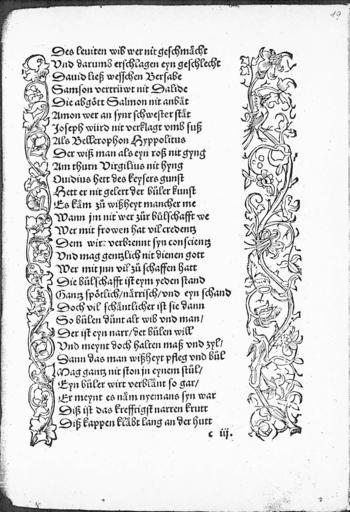 19
Des leuiten wib wer nit geschmächt
Vnd darumb erschlagen eyn geschlecht
Dauid ließ weschen Bersabe
Samson vertrüwt nit Dalide
Die abgött Salmon nit anbät
Amon wer an synr schwester stät
Joseph würd nit verklagt vmb suß
Als Bellerophon Hyppolitus
Der wiß man als eyn roß nit gyng
Am thurn Virgilius nit hyng
Ouidius hett des keysers gunst
Hett er nit gelert der büler kunst
Es käm zů wißheyt mancher me
Wann jm nit wer zůr bůlschafft we
Wer mit frowen hat vil credentz
Dem wirt verbrennt syn conscientz
Vnd mag gentzlich nit dienen gott
Wer mit jnn vil zů schaffen hatt
Die bůlschafft ist eym yeden stand
Gantz spötlich/närrisch/vnd eyn schand
Doch vil schäntlicher ist sie dann
So bůlen důnt alt wib vnd man/
Der ist eyn narr/der bůlen will
Vnd meynt doch halten maß vnd zyl/
Dann das man wißheyt pfleg vnd bůl
Mag gantz nit ston jn eynem stůl/
Eyn bůler wirt verblänt so gar/
Er meynt es näm nyemans syn war
Diß ist das kreffrigst narren krutt
Diß kappen kläbt lang an der hutt
c iij.